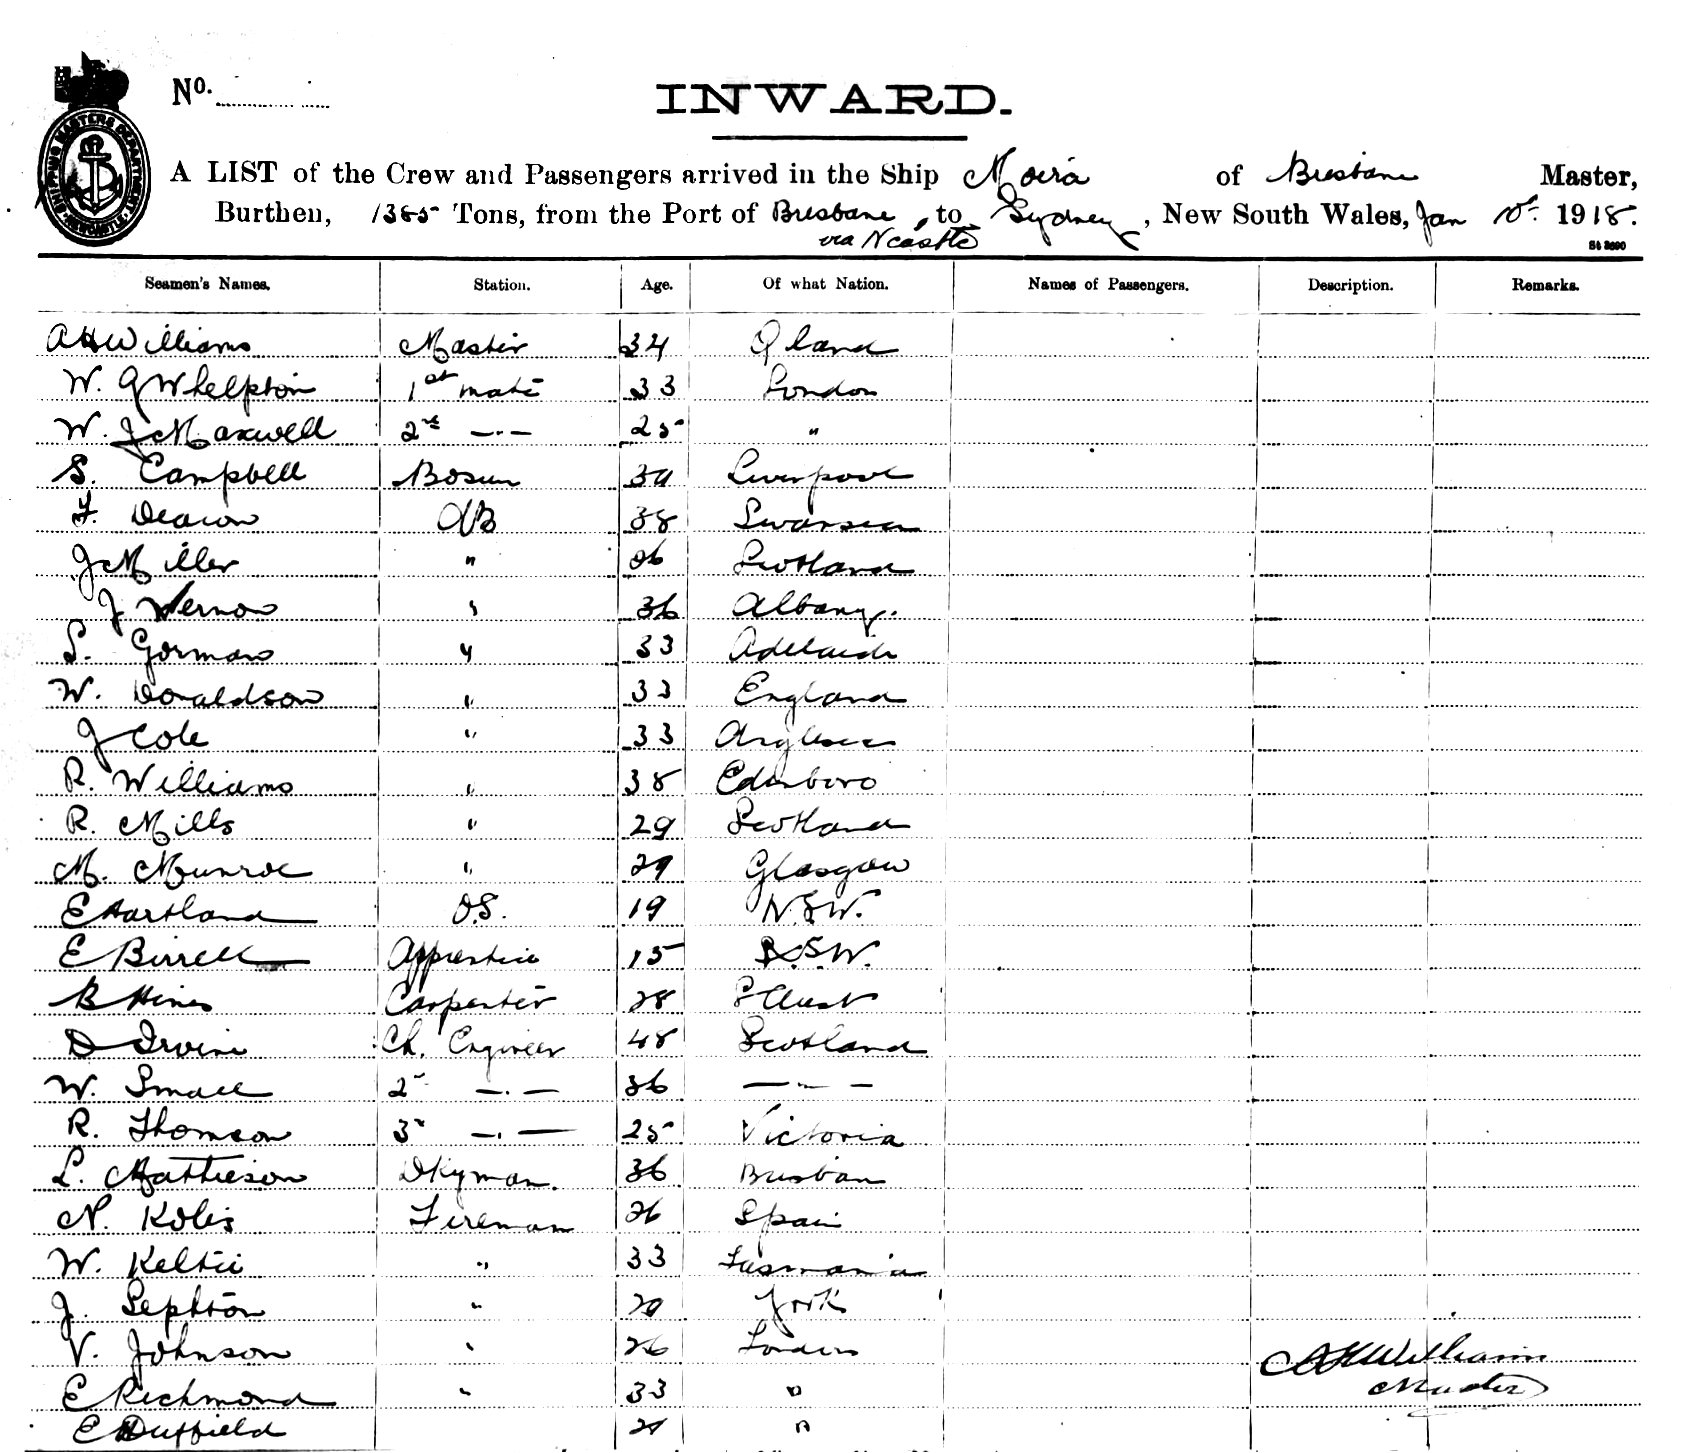 No.
INWARD.
SHIPPING MASTERS DEPARTMENT NEWCASTLE
A LIST of the Crew and Passengers arrived in the Ship Moira of Brisbane Master,
Burthen, 1385 Tons, from the Port of Brisbane, to Sydney, New South Wales, Jan 10th 1918.
via Ncastle
St 3690
Seamen's Names. Station. Age. Of what Nation. Names of Passengers. Description. Remarks.
A H Williams Master 34 Qland
W. G Whelpton 1st mate 33 London
W. J Maxwell 2nd —"— 25 "
S. Campbell Bosun 39 Liverpool
F. Deacon AB 38 Swansea
J Miller " 26 Scotland
J Vernon " 36 Albany.
S. Gorman " 33 Adelaide
W. Donaldson " 33 England
J Cole " 33 Anglesea
R. Williams " 38 Edinboro
R. Mills " 29 Scotland
M. Munroe " 29 Glasgow
E Hartland O.S. 19 N.S.W.
E Birrell Apprentice 15 N.S.W.
B Hines Carpenter 28 S Aust
D Irvine Ch. Engineer 48 Scotland
W. Small 2nd —"— 36 —"—
R. Thomson 3rd —"— 25 Victoria
L. Mattieson Dkyman. 36 Brisban
N. Kolis Fireman 26 Spain
W. Keltie " 33 Tasmania
J. Sephton " 29 York
V. Johnson " 26 London
E Richmond " 33 "
E Duffield 29 "
A H Williams
Master